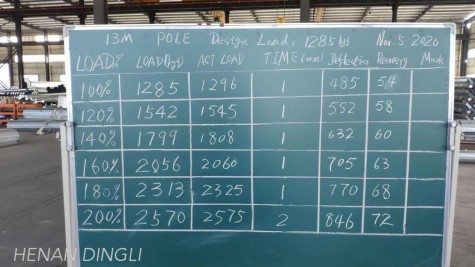 13M POLE Design Load: 1285kgf Nov. 5, 2020
LOAD% LOAD(kgf) ACT LOAD TIME(min) Deflection Recovery Mark
100% 1285 1296 1 485 54
120% 1542 1545 1 552 58
140% 1799 1808 1 632 60
160% 2056 2060 1 705 63
180% 2313 2325 1 770 68
200% 2570 2575 2 846 72
HENAN DINGLI